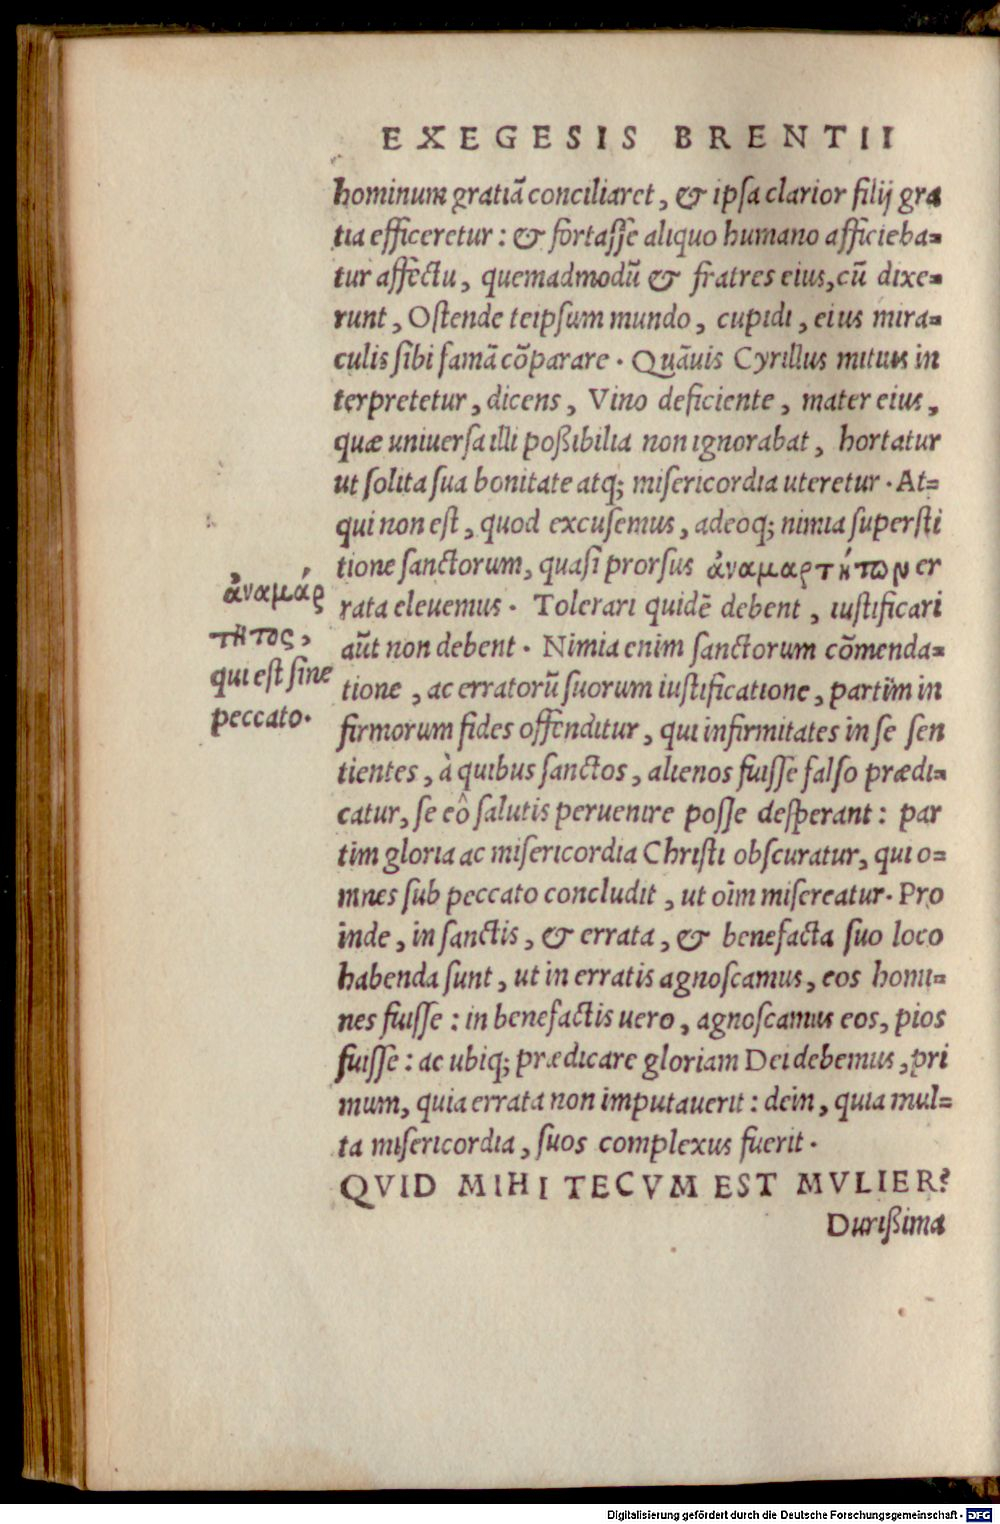 EXEGESIS BRENTII
hominum gratiã conciliaret, & ipsa clarior filij gra
tia efficeretur: & fortasse aliquo humano afficieba=
tur affectu, quemadmodũ & fratres eius, cũ dixe=
runt, Ostende teipsum mundo, cupidi, eius mira=
culis sibi famã cõparare. Quãuis Cyrillus mitius in
terpretetur, dicens, Vino deficiente, mater eius,
quæ uniuersa illi poßibilia non ignorabat, hortatur
ut solita sua bonitate atq; misericordia uteretur. At=
qui non est, quod excusemus, adeoq; nimia supersti
tione sanctorum, quasi prorsus ἀναμαρτήτων er
rata eleuemus. Tolerari quidẽ debent, iustificari
aũt non debent. Nimia enim sanctorum cõmenda=
tione, ac erratorũ suorum iustificatione, partim in
firmorum fides offenditur, qui infirmitates in se sen
tientes, à quibus sanctos, alienos fuisse falso prædi=
catur, se eô salutis peruenire posse desperant: par
tim gloria ac misericordia Christi obscuratur, qui o=
mnes sub peccato concludit, ut oĩm misereatur. Pro
inde, in sanctis, & errata, & benefacta suo loco
habenda sunt, ut in erratis agnoscamus, eos homi=
nes fuisse: in benefactis uero, agnoscamus eos, pios
fuisse: ac ubiq; prædicare gloriam Dei debemus, pri
mum, quia errata non imputauerit: dein, quia mul=
ta misericordia, suos complexus fuerit.
QVID MIHI TECVM EST MVLIER?
Durißima
ἀναμάρ
τητος,
qui est sine
peccato.
Digitalisierung gefördert durch die Deutsche Forschungsgemeinschaft - DFG